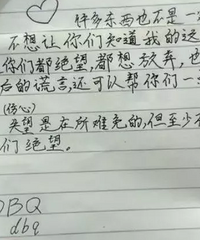 许多东西也不是一
不想让你们知道我的这
你们都绝望,都想放弃,也
后的谎言,还可以帮你们一
(伤心)
失望是在所难免的,但至少不
们绝望。
DBQ
dbq